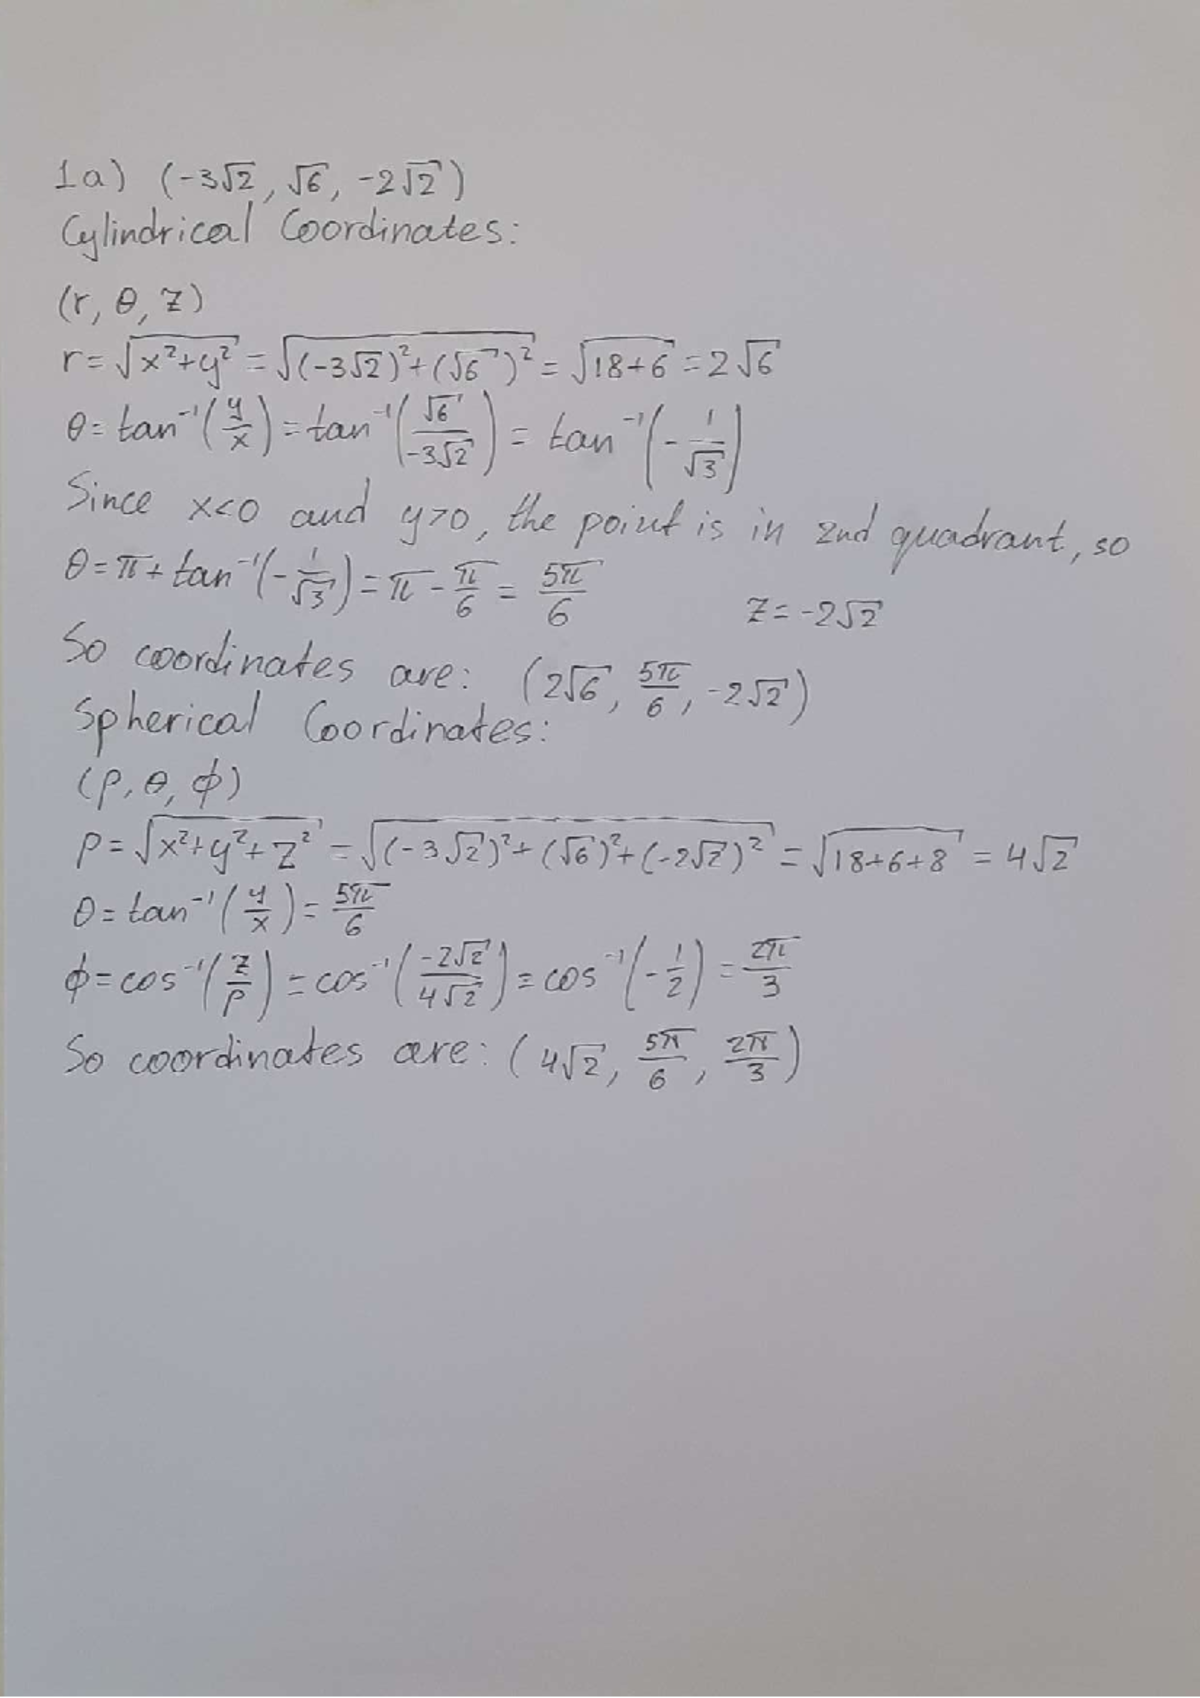 1a) (-3√2, √6, -2√2)
Cylindrical Coordinates:
(r, θ, z)
r = √(x²+y²) = √((-3√2)²+(√6)²) = √(18+6) = 2√6
θ = tan⁻¹(y/x) = tan⁻¹(√6/-3√2) = tan⁻¹(-1/√3)
Since x<0 and y>0, the point is in 2nd quadrant, so
θ = π + tan⁻¹(-1/√3) = π - π/6 = 5π/6
z = -2√2
So coordinates are: (2√6, 5π/6, -2√2)
Spherical Coordinates:
(ρ, θ, φ)
ρ = √(x²+y²+z²) = √((-3√2)²+(√6)²+(-2√2)²) = √(18+6+8) = 4√2
θ = tan⁻¹(y/x) = 5π/6
φ = cos⁻¹(z/ρ) = cos⁻¹(-2√2/4√2) = cos⁻¹(-1/2) = 2π/3
So coordinates are: (4√2, 5π/6, 2π/3)